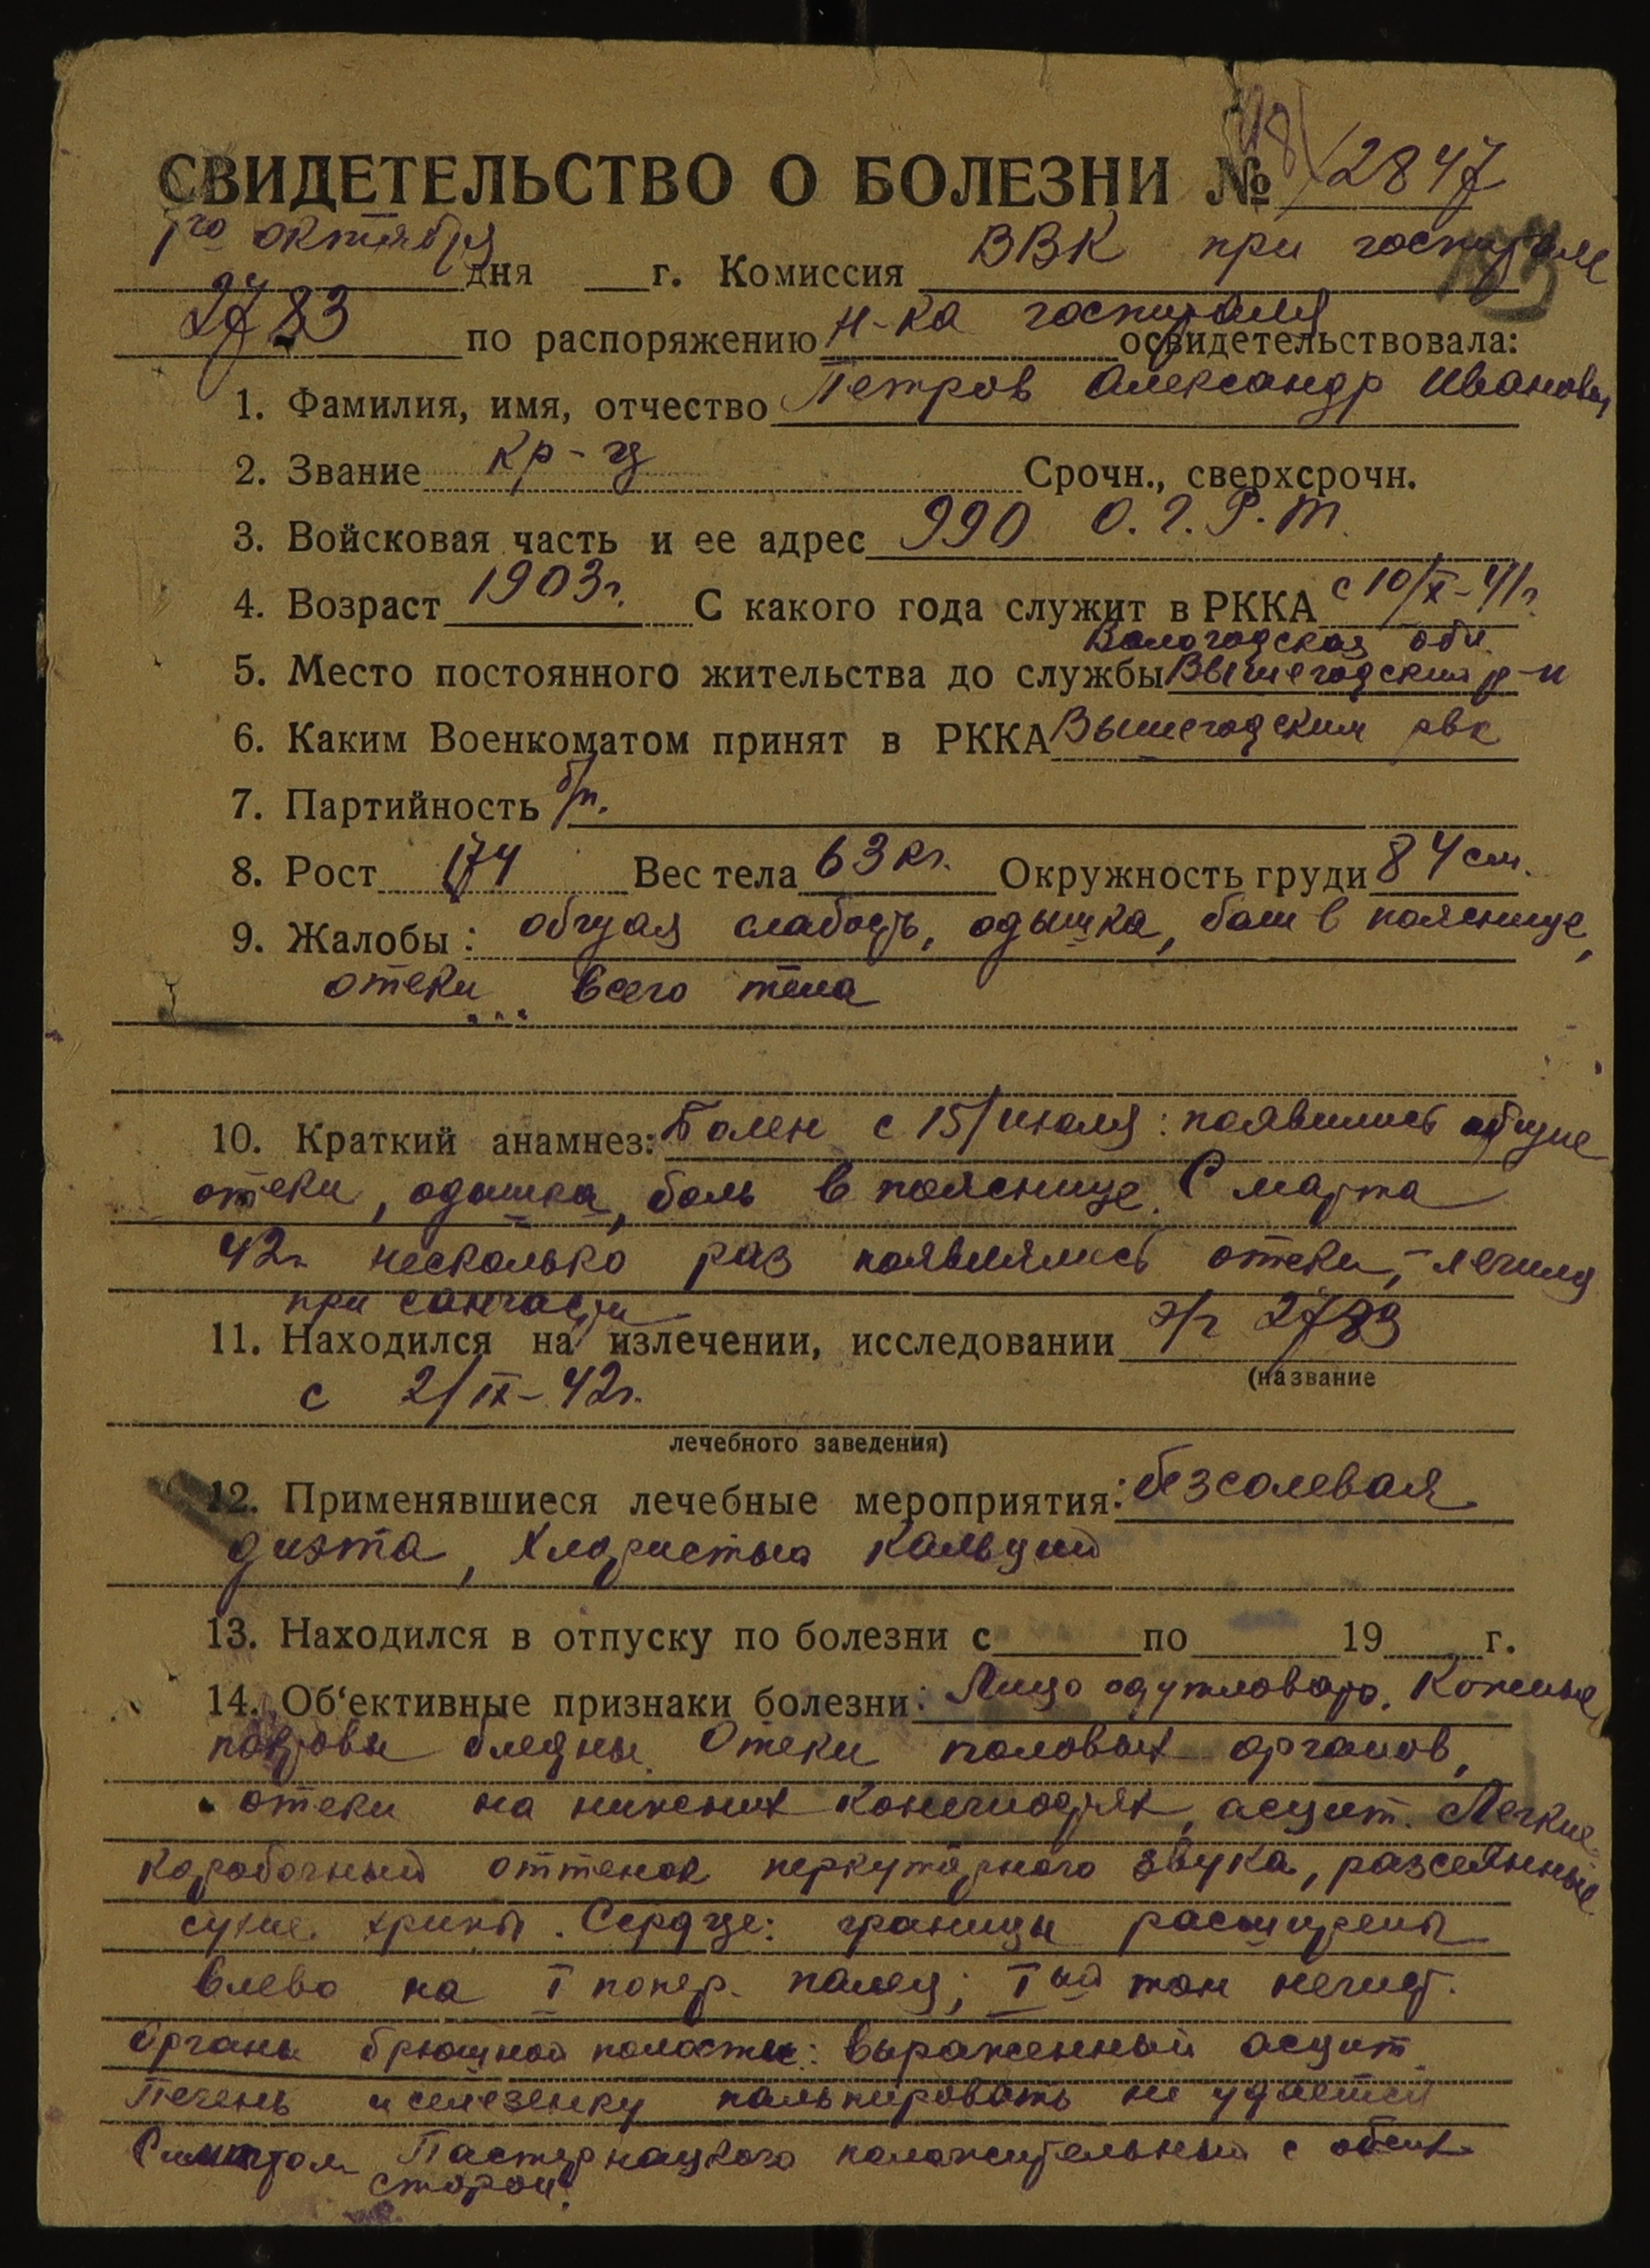 СВИДЕТЕЛЬСТВО О БОЛЕЗНИ № 2847
1го октября дня г. Комиссия ВВК при госпитале
2783 по распоряжению н-ка госпиталя освидетельствовала:
1. Фамилия, имя, отчество Петров Александр Иванович
2. Звание кр-ц Срочн., сверхсрочн.
3. Войсковая часть и ее адрес 990 О.Г.Р.т.
4. Возраст 1903г. С какого года служит в РККА с 10/X-41г.
Вологодская обл.
5. Место постоянного жительства до службы Вышегодский р-н
6. Каким Военкоматом принят в РККА Вышегодским рвк
7. Партийность б/п.
8. Рост 174 Вес тела 63 кг. Окружность груди 84 см.
9. Жалобы: общая слабость, одышка, боли в пояснице,
отеки всего тела
10. Краткий анамнез: Болен с 15/июля: появились общие
отеки, одышка, боль в пояснице. С марта
42г. несколько раз появлялись отеки, - лечился
при санчасти
11. Находился на излечении, исследовании э/г 2783
(название
с 2/IX-42г.
лечебного заведения)
12. Применявшиеся лечебные мероприятия: безсолевая
диэта, хлористый кальций
13. Находился в отпуску по болезни с по 19 г.
14. Об'ективные признаки болезни: Лицо одутловато. Кожные
покровы бледны. Отеки половых органов,
отеки на нижних конечностях, асцит. Легкие
коробочный оттенок перкуторного звука, разсеянные
сухие хрипы. Сердце: границы расширены
влево на I попер. палец; Iый тон нечист.
Органы брюшной полости: выраженный асцит.
Печень и селезенку пальпировать не удается
Симптом Пастернацкого положительный с обеих
сторон.